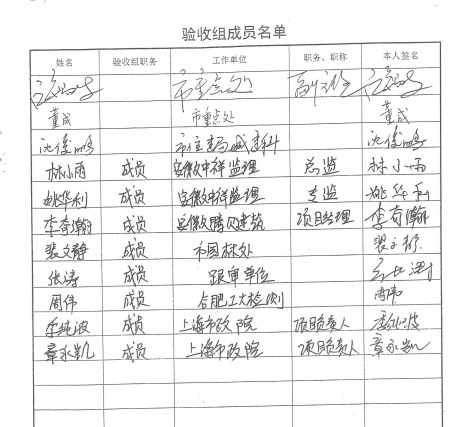 验收组成员名单
姓名 验收组职务 工作单位 职务、职称 本人签名
市重点处
董成 市重点处 董成
沈俊鸣 沈俊鸣
林小雨 成员 安徽中祥监理 总监 林小雨
姚华利 成员 安徽中祥监理 专监 姚华利
李奇瀚 成员 安徽腾飞建筑 项目经理 李奇瀚
裴文静 成员
张涛 成员 跟审单位
周伟 成员 合肥工大检测 周伟
李纯波 成员 上海市政院 项目负责人 李纯波
章永凯 成员 上海市政院 项目负责人 章永凯